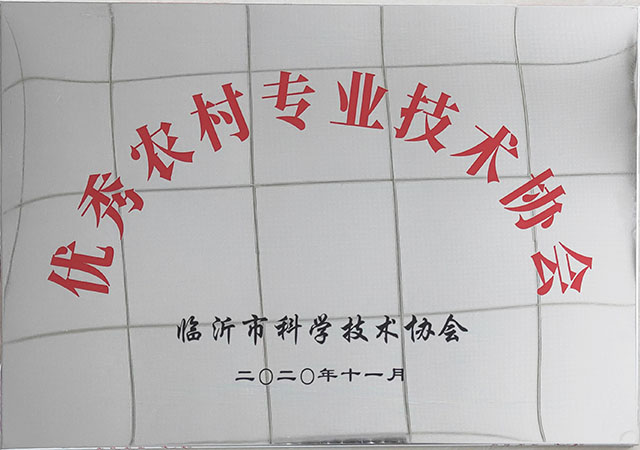 优秀农村专业技术协会
临沂市科学技术协会
二〇二〇年十一月